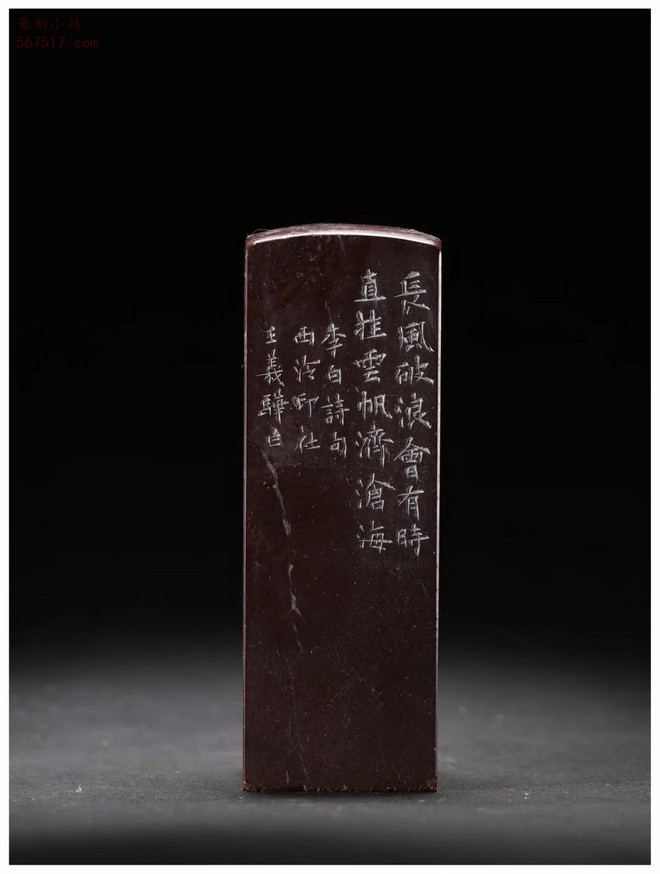 篆刻小站
567517.com
長風破浪會有時
直挂雲帆濟滄海
李白詩句
西泠印社
王義驊白